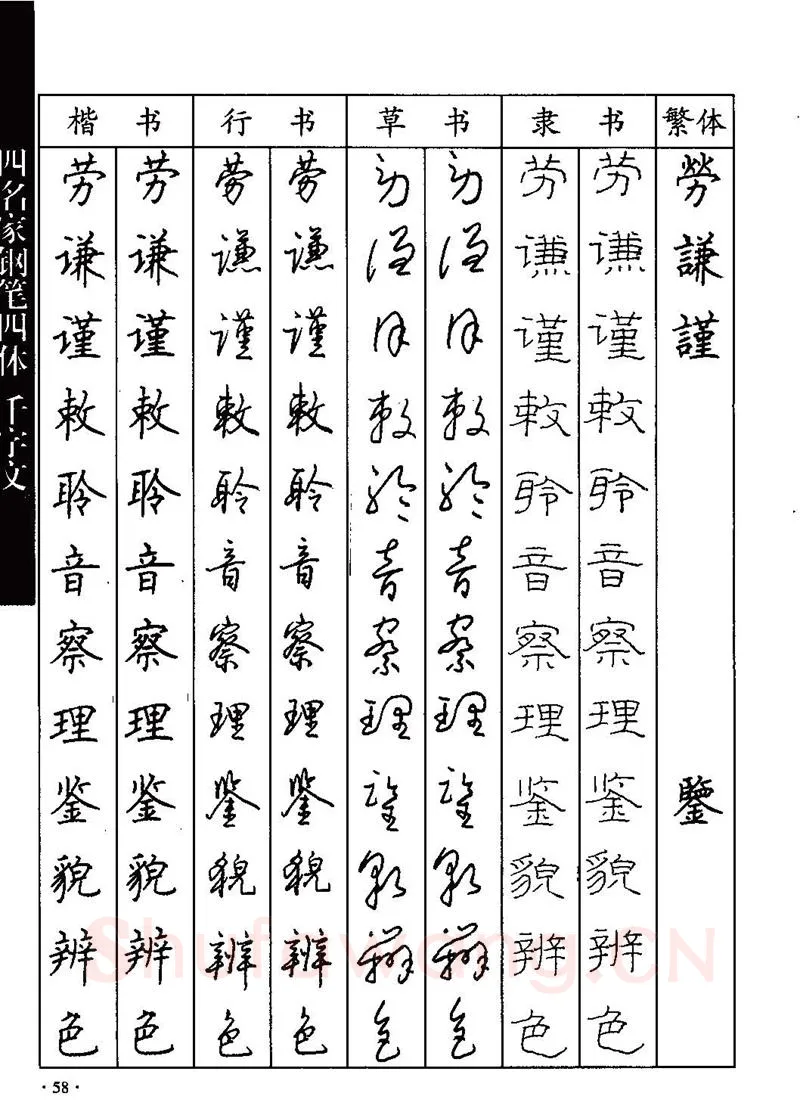 四名家钢笔四体 千字文
楷 书 行 书 草 书 隶 书 繁体
劳 劳 劳 劳 劳 劳 劳 劳 勞
谦 谦 谦 谦 谦 谦 谦 谦 謙
谨 谨 谨 谨 谨 谨 谨 谨 謹
敕 敕 敕 敕 敕 敕 敕 敕
聆 聆 聆 聆 聆 聆 聆 聆
音 音 音 音 音 音 音 音
察 察 察 察 察 察 察 察
理 理 理 理 理 理 理 理
鉴 鉴 鉴 鉴 鉴 鉴 鉴 鉴 鑒
貌 貌 貌 貌 貌 貌 貌 貌
辨 辨 辨 辨 辨 辨 辨 辨
色 色 色 色 色 色 色 色
Shufawang.CN
·58·